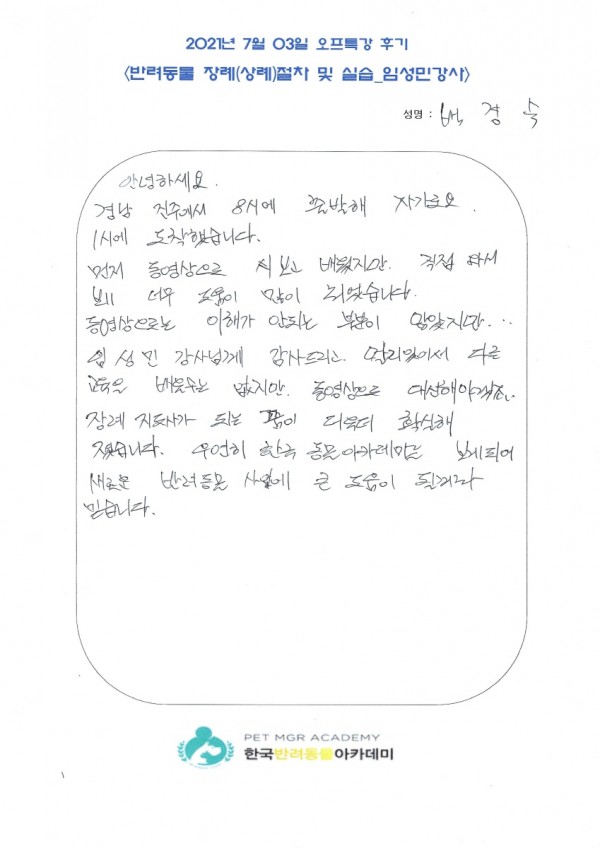 2021년 7월 03일 오프특강 후기
<반려동물 장례(상례)절차 및 실습_임성민강사>
성명 : 경숙
안녕하세요.
경남 진주에서 8시에 출발해 자가로
1시에 도착했습니다.
먼저 동영상으로 배웠지만 직접 와서
보니 너무 도움이 많이 되었습니다.
동영상으로는 이해가 안되는 부분이 많았지만...
임성민 강사님께 감사드리고 멀리있어서 다른
교육을 배울수는 없지만 동영상으로 대신해야겠죠..
장례 지도사가 되는 꿈이 더욱더 확실해
졌습니다. 우연히 한국 동물아카데미를 보게되어
새로운 반려동물 사업에 큰 도움이 될거라
믿습니다.
PET MGR ACADEMY
한국반려동물아카데미